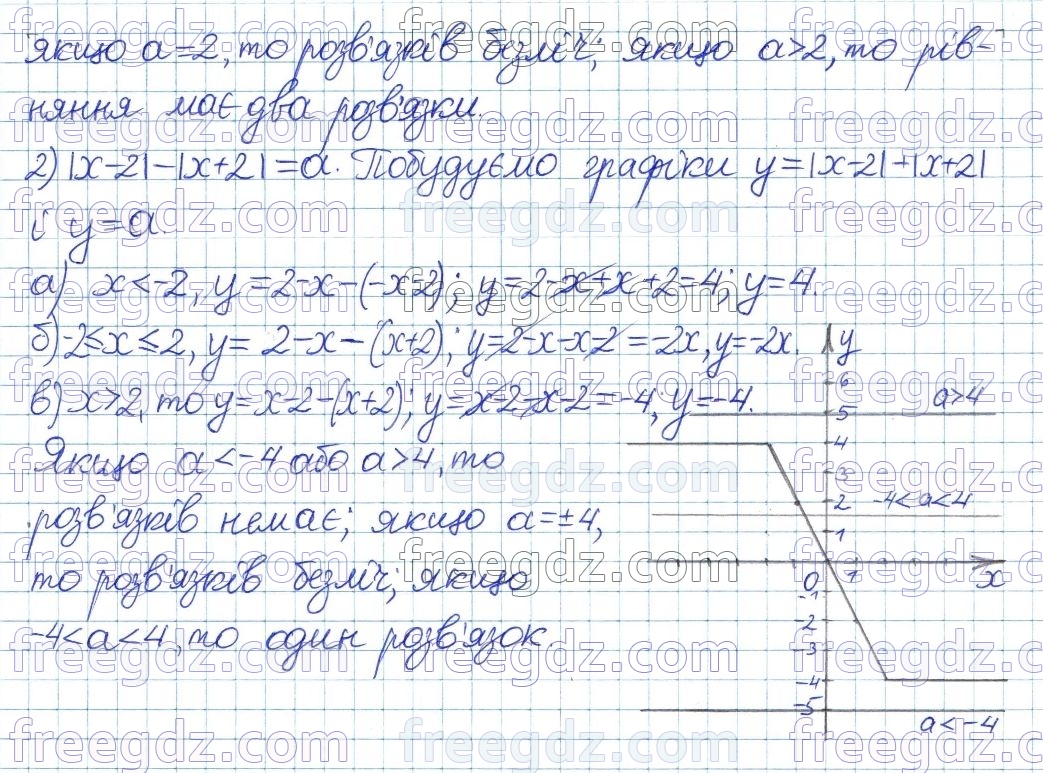 якщо a=2, то розв'язків безліч; якщо a>2, то рів-
няння має два розв'язки.
2) |x-2|-|x+2|=a. Побудуємо графіки y=|x-2|-|x+2|
і y=a.
а) x<-2, y=2-x-(-x-2); y=2-x+x+2=4; y=4.
б) -2≤x≤2, y= 2-x-(x+2); y=2-x-x-2=-2x, y=-2x.
в) x>2, то y=x-2-(x+2); y=x-2-x-2=-4; y=-4.
Якщо a<-4 або a>4, то
розв'язків немає; якщо a=±4,
то розв'язків безліч; якщо
-4<a<4, то один розв'язок.
y
6
5
a>4
4
3
2
-4<a<4
1
0
1
x
-1
-2
-3
-4
-5
a<-4
freegdz.com